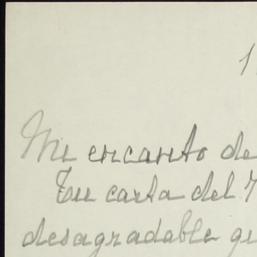 1
Mi encanto de
Tu carta del 7
desagradable qu